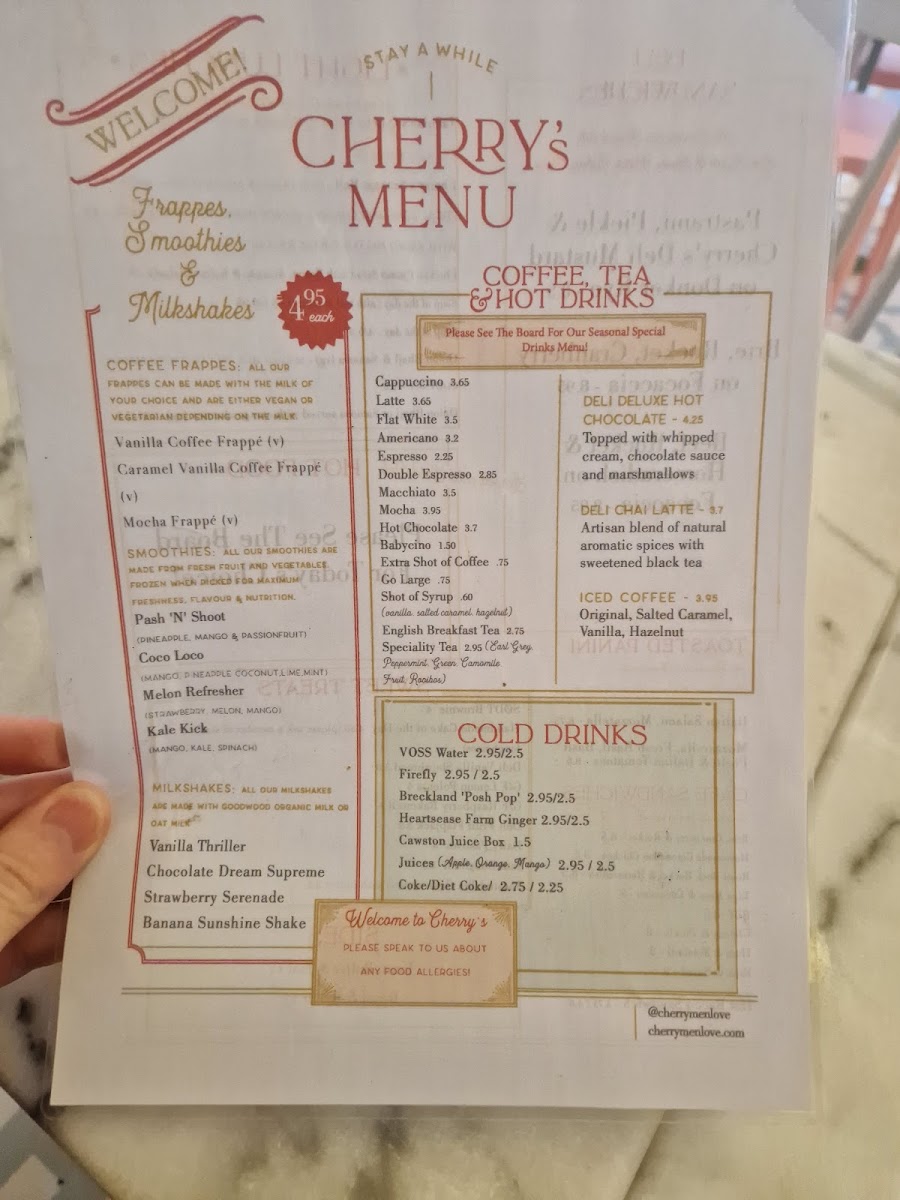 WELCOME!
STAY A WHILE
CHERRY's
MENU
Frappes,
Smoothies
&
Milkshakes
4.95
each
COFFEE FRAPPES: ALL OUR
FRAPPES CAN BE MADE WITH THE MILK OF
YOUR CHOICE AND ARE EITHER VEGAN OR
VEGETARIAN DEPENDING ON THE MILK.
Vanilla Coffee Frappé (v)
Caramel Vanilla Coffee Frappé
(v)
Mocha Frappé (v)
SMOOTHIES: ALL OUR SMOOTHIES ARE
MADE FROM FRESH FRUIT AND VEGETABLES.
FROZEN WHEN PICKED FOR MAXIMUM
FRESHNESS, FLAVOUR & NUTRITION.
Pash 'N' Shoot
(PINEAPPLE, MANGO & PASSIONFRUIT)
Coco Loco
(MANGO, PINEAPPLE COCONUT, LIME, MINT)
Melon Refresher
(STRAWBERRY, MELON, MANGO)
Kale Kick
(MANGO, KALE, SPINACH)
MILKSHAKES: ALL OUR MILKSHAKES
ARE MADE WITH GOODWOOD ORGANIC MILK OR
OAT MILK
Vanilla Thriller
Chocolate Dream Supreme
Strawberry Serenade
Banana Sunshine Shake
COFFEE, TEA
& HOT DRINKS
Please See The Board For Our Seasonal Special
Drinks Menu!
Cappuccino 3.65
Latte 3.65
Flat White 3.5
Americano 3.2
Espresso 2.25
Double Espresso 2.85
Macchiato 3.5
Mocha 3.95
Hot Chocolate 3.7
Babycino 1.50
Extra Shot of Coffee .75
Go Large .75
Shot of Syrup .60
(vanilla, salted caramel, hazelnut)
English Breakfast Tea 2.75
Speciality Tea 2.95 (Earl Grey,
Peppermint, Green, Camomile,
Fruit, Rooibos)
DELI DELUXE HOT
CHOCOLATE - 4.25
Topped with whipped
cream, chocolate sauce
and marshmallows
DELI CHAI LATTE - 3.7
Artisan blend of natural
aromatic spices with
sweetened black tea
ICED COFFEE - 3.95
Original, Salted Caramel,
Vanilla, Hazelnut
COLD DRINKS
VOSS Water 2.95/2.5
Firefly 2.95 / 2.5
Breckland 'Posh Pop' 2.95/2.5
Heartsease Farm Ginger 2.95/2.5
Cawston Juice Box 1.5
Juices (Apple, Orange, Mango) 2.95 / 2.5
Coke/Diet Coke/ 2.75 / 2.25
Welcome to Cherry's
PLEASE SPEAK TO US ABOUT
ANY FOOD ALLERGIES!
@cherrymenlove
cherrymenlove.com